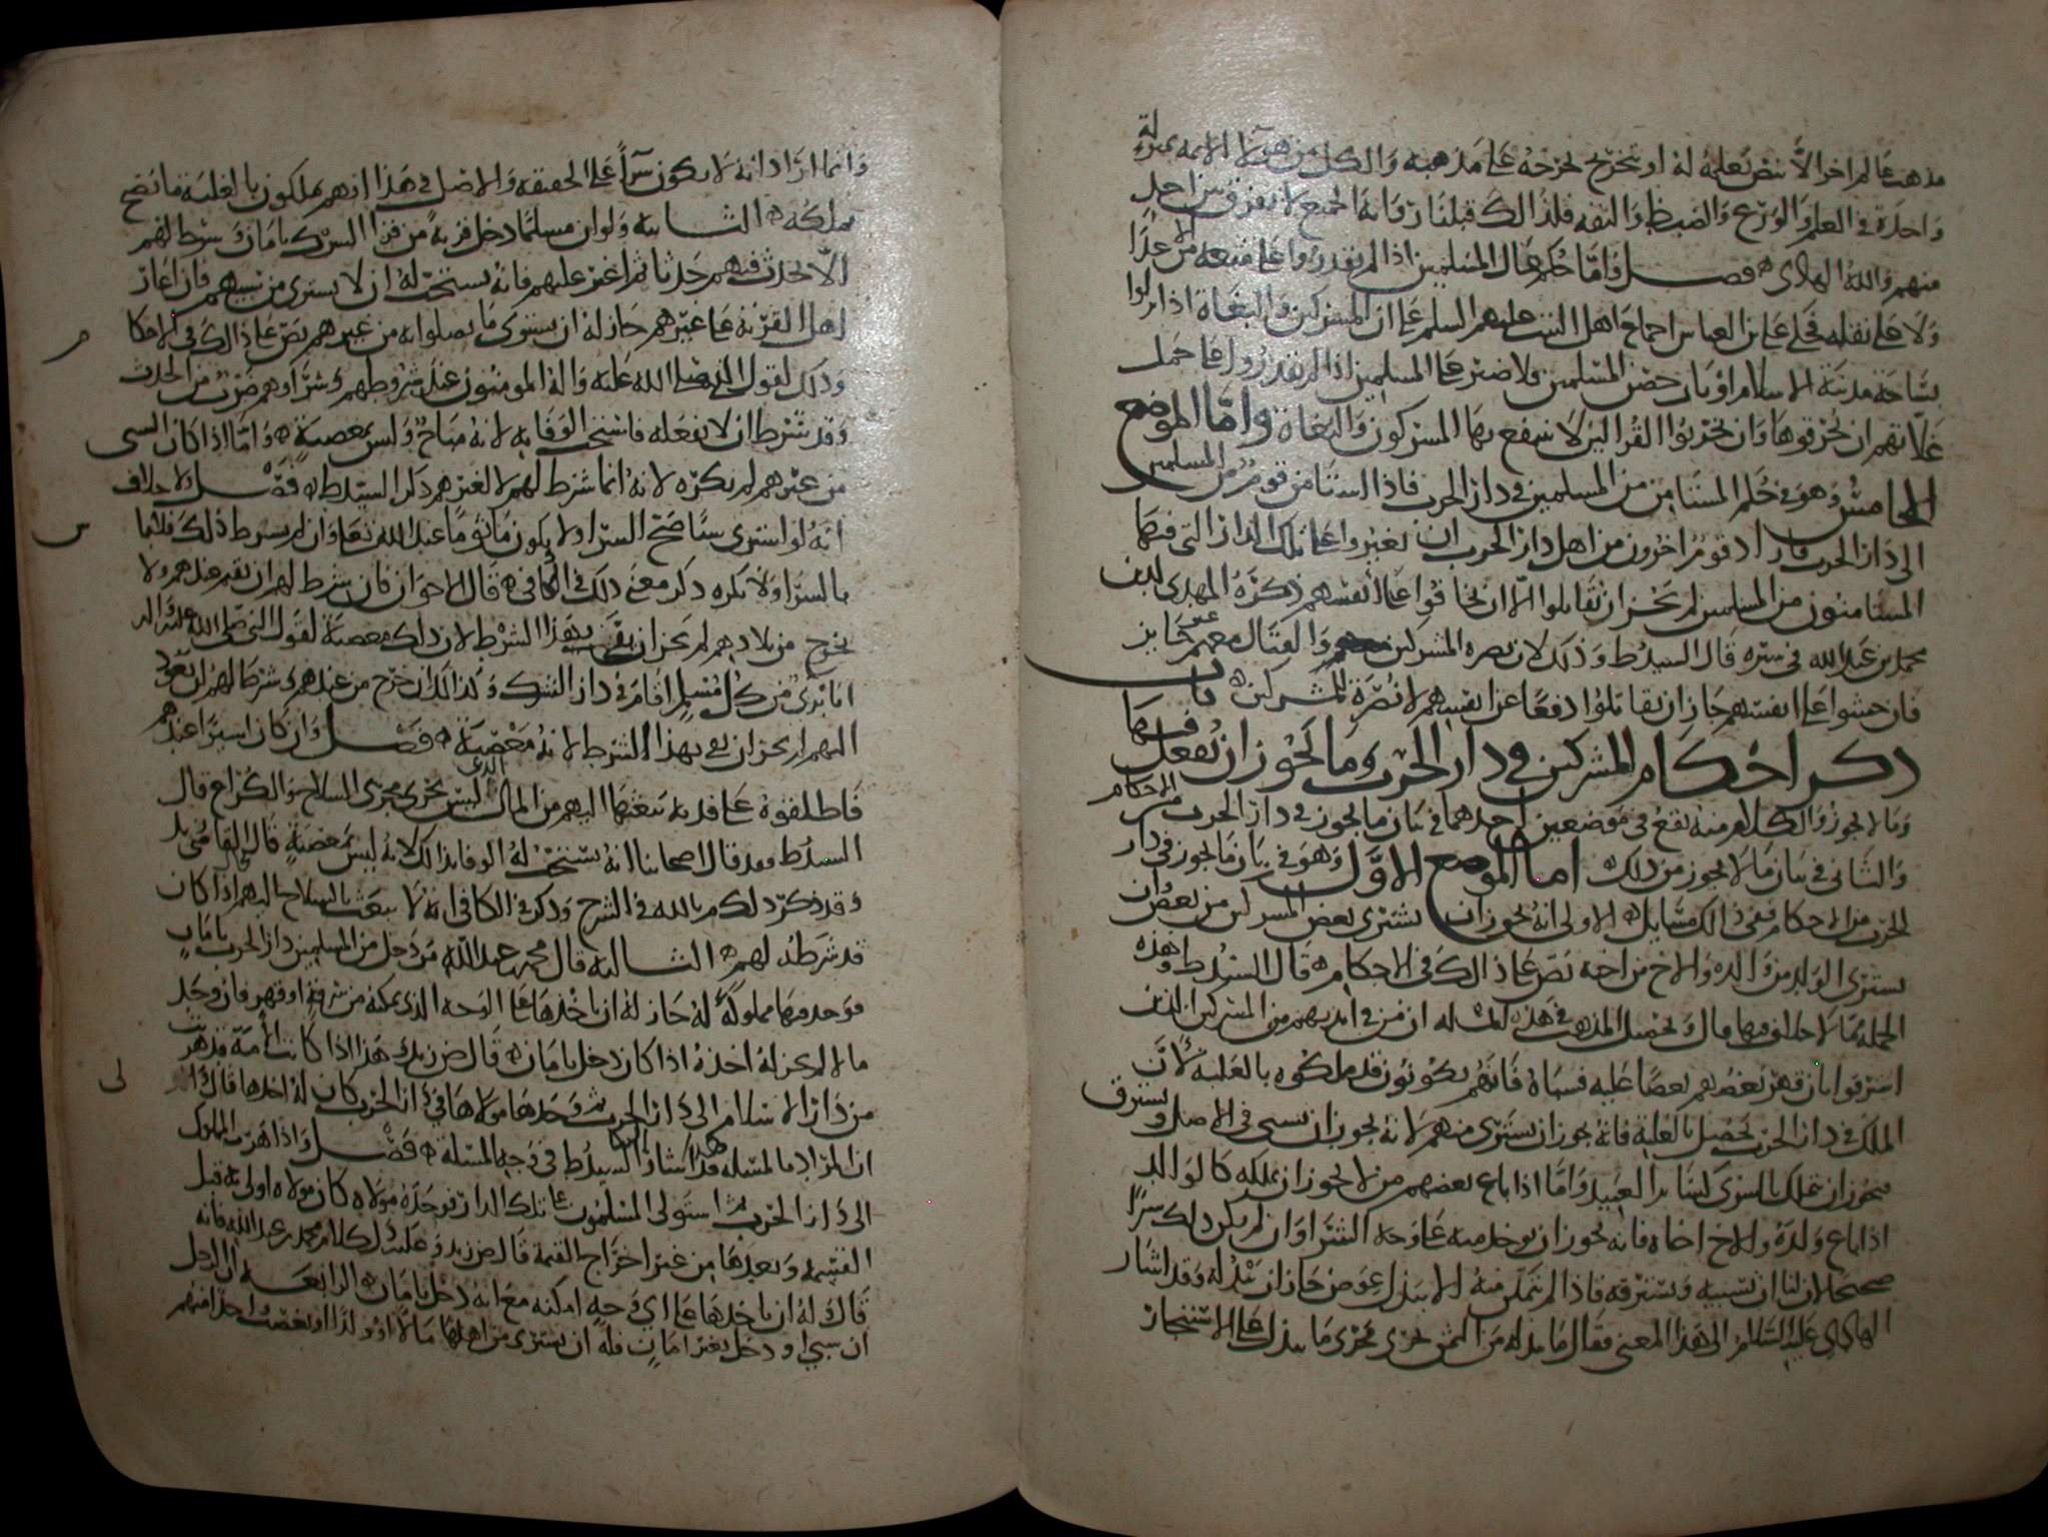 مذهب عالم اخر الا بنص نعلمه له او بتخريج نخرجه على مذهبه والكل من هؤلا الايمه بمنزلة
واحدة في العلم والورع والضبط والثقه فلذالك قبلنا رواية الجميع لا نفرق بين احد
منهم والله الهادي فصل واما حكم مال المسلمين اذا لم يقدروا على منعه من الاعدا
ولا على نقله فحكى علي بن العباس اجماع اهل البيت عليهم السلم على ان المشركين والبغاة اذا نزلوا
بساحة مدينة الاسلام او بان حصن المسلمين فلا ضير على المسلمين اذا لم يقدروا على حمل
غلاتهم ان يحرقوها وان يخربوا القرا لين لا ينتفع بها المشركون والبغاة واما الموضع
الخامس وهو في حكم المستامن من المسلمين في دار الحرب فاذا استامن قوم من المسلمين
الى دار الحرب فاراد قوم اخرون من اهل دار الحرب ان يغيروا على تلك الدار التي فيها
المستامنون من المسلمين لم يجز ان يقاتلوا الا ان يخافوا على انفسهم ذكره المهدي لدين
محمد بن عبد الله في سيره قال السيد ط وذلك لان نصره المشركين والقتال معهم غير جايز
فان خشوا على انفسهم جاز ان يقاتلوا دفعا عن انفسهم لا نصرة للمشركين باب
ذكر احكام المشركين في دار الحرب وما يجوز ان يفعل فيها
وما لا يجوز والكلام منه يقع في موضعين احدهما في بيان ما يجوز في دار الحرب من الاحكام
والثاني في بيان ما لا يجوز من ذلك اما الموضع الاول وهو في بيان ما يجوز في دار
الحرب من الاحكام ففي ذالك مسايل الاولى انه يجوز ان يشتري بعض المشركين من بعض وان
يشتري الولد من والده والاخ من اخيه نص على ذالك في الاحكام قال السيد ط وهذه
الجملة مما لا خلاف فيها قال وتحصيل المذهب في هذه المسله ان من في ايديهم من المشركين الذين
استرقوا بان قهر بعضهم بعضا عليه فسباه فانهم يكونون قد ملكوه بالغلبه لان
الملك في دار الحرب يحصل بالغلبة فانه يجوز ان يشترى منهم لانه يجوز ان يسبى في الاصل ويسترق
فيجوز ان يملك بالشرى كسايرا العبيد واما اذا باع بعضهم من لا يجوز ان يملكه كالوالد
اذا باع ولده والاخ اخاه فانه يجوز ان يوخذ منه على وجه الشرا وان لم يكن ذلك شرا
صحيحا لان لنا ان نسبيه ونسترقه فاذا لم نتمكن منه الا ببذل عوض جاز ان نبذله وقد اشار
الهادي عليه السلام الى هذا المعنى فقال ما بذله من الثمن جرى مجرى ما يبذل على الاستنجاز
وانما اراد انه لا يكون شراً على الحقيقه والاصل في هذا انهم يملكون بالغلبة ما يصح
تملكه الثانيه ولو ان مسلما دخل قرية من قرا الشرك بامان وشرط لهم
الا يحدث فيهم حدثا ثم اغير عليهم فانه يستحب له ان لا يشتري من سبيهم فان اغار
اهل القرية على غيرهم جاز له ان يشتري ما يصلوا به من غيرهم نص على ذالك في الاحكا
م
وذلك لقول النبي صلى الله عليه واله المومنون عند شروطهم وشراوهم ضرب من الحدث
وقد شرط ان لا يفعله فاستحب الوفا به لانه مباح وليس بمعصية واما اذا كان السبي
من غيرهم لم يكره لانه انما شرط لهم لا لغيرهم ذكره السيد ط فصل ولا خلاف
س
انه لو اشترى سبيا صح الشرا ولا يكون ماثوما عند الله تعا وان لم يشرط ذلك فلا باس
بالشرا ولا يكره ذكر معنى ذلك في الكافي قال الاخوان فان شرط لهم ان يقيم عندهم ولا
يخرج من بلادهم لم يجز ان يفي بهذا الشرط لان ذلك معصية لقول النبي صلى الله عليه واله
انا بري من كل مسلم اقام في دار الشرك وكذالك ان خرج من عندهم وشرط لهم ان يعود
اليهم لم يجز ان يفي بهذا الشرط لانه معصية فصل وان كان اسيرا عندهم
فاطلقوه على فدية يبعثها اليهم من المال الذي ليس يجرى مجرى السلاح والكراع قال
السيد ط فعند قال اصحابنا انه يستحب له الوفا بذالك لانه ليس بمعصية قال القاضي زيد
وقد ذكره المويد بالله في الشرح وذكر في الكافي انه لا يبعث بالسلاح اليهم اذا كان
قد شرط لهم الثالثه قال محمد بن عبد الله من دخل من المسلمين دار الحرب بامان
فوجد فيها مملوكةً له جاز له ان ياخذها على الوجه الذي يمكنه من سرقةٍ او قهر فان وجد
مالا لم يجز له اخذه اذا كان دخل بامان قال ض زيد وهذا اذا كانت الامة قد هربت
لى
من دار الاسلام الى دار الحرب ثم وجدها مولاها في دار الحرب كان له اخذها قال
ان المراد بالمسله هذا اشار السيد ط في وجه المسلة فصل واذا هرب المملوك
الى دار الحرب ثم استولى المسلمون على تلك الدار فوجده مولاه كان مولاه اولى به قبل
القسمه وبعدها من غير اخراج القيمة قال ض زيد وعليه دل كلام محمد بن عبد الله فانه
قال له ان ياخذها على اي وجهٍ امكنه مع انه دخل بامان الرابعه ان الرجل
ان سبي او دخل بغير امان فله ان يشتري من اهلها مالا او ولدا او يغصب احدا منهم